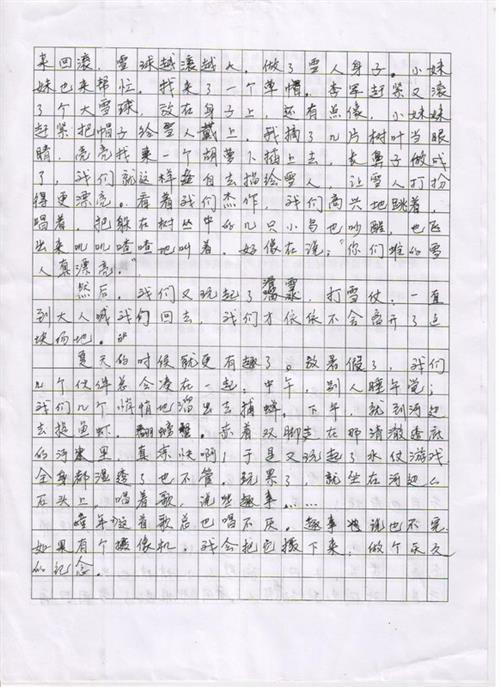 来回滚，雪球越滚越大，做了雪人身子。小妹
妹也来帮忙，找来了一个草帽。李军赶紧又滚
了个大雪球，放在身子上，还有点像，小妹妹
赶紧把帽子给雪人戴上，我摘了几片树叶当眼
睛，亮亮找来一个胡萝卜插上去，大鼻子做成
了，我们就这样各自去描绘雪人，让雪人打扮
得更漂亮。看着我们杰作，我们高兴地跳着，
唱着，把躲在树丛中的几只小鸟也吵醒，也飞
出来叽叽喳喳地叫着，好像在说：“你们堆的雪
人真漂亮。”
然后，我们又玩起了滑雪，打雪仗，一直
到大人喊我们回去，我们才依依不舍离开了这
块雨地。
夏天的时候就更有趣了。放暑假了，我们
几个伙伴总会凑在一起，中午，别人睡午觉；
我们几个悄悄地溜出去捕蝉。下午，就到河边
去摸鱼虾，翻螃蟹。赤着双脚走在那清澈透底
的河水里，真凉快啊！于是又玩起了水仗游戏
全身都湿透了也不管，玩累了，就坐在河边的
石头上，唱着歌，说些趣事……
童年这首歌总也唱不厌。趣事也说也不完
如果有个摄像机，我会把它摄下来，做个永久
的记念。